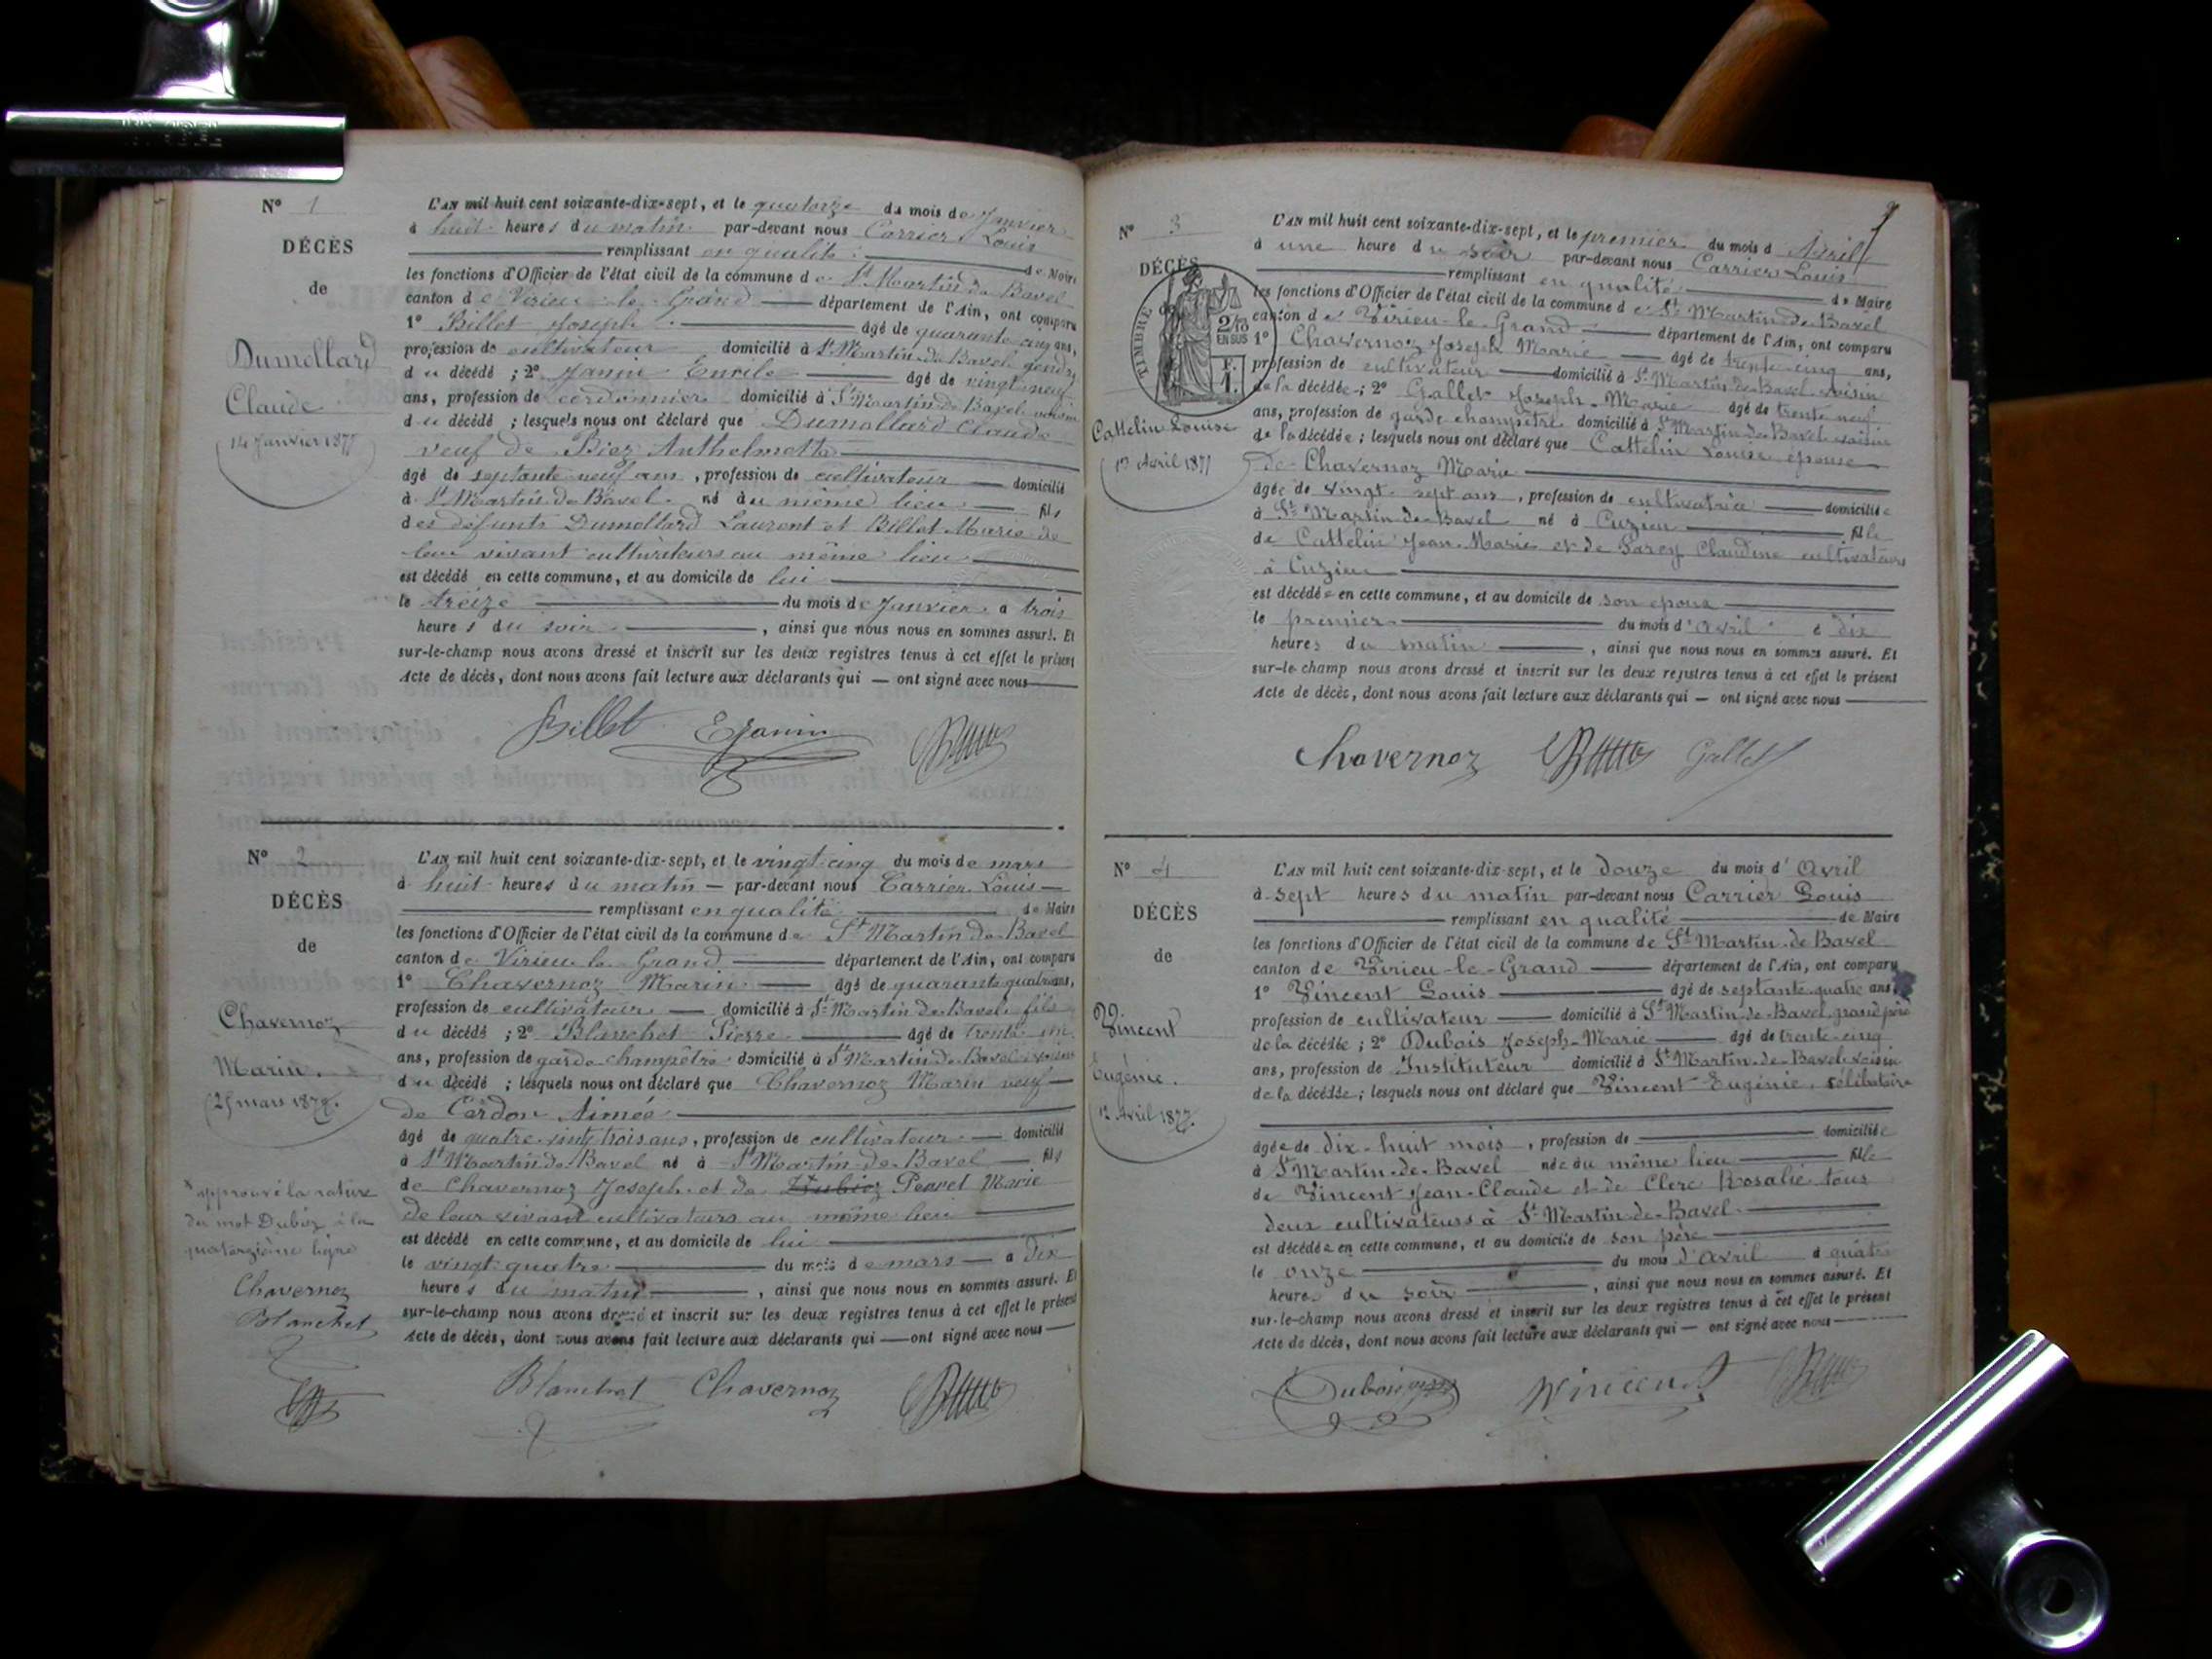 N° 1
DÉCÈS
de
Dumollard
Claude
14 Janvier 1877
L'AN mil huit cent soixante-dix-sept, et le quatorze du mois de Janvier
à huit heures du matin par-devant nous Carrier Louis
remplissant en qualité de Maire
les fonctions d'Officier de l'état civil de la commune de St Martin de Bavel
canton de Virieu le Grand département de l'Ain, ont comparu
1° Billet Joseph âgé de quarante cinq ans,
profession de cultivateur domicilié à St Martin de Bavel gendre
du décédé ; 2° Janin Emile âgé de vingt neuf
ans, profession de cordonnier domicilié à St Martin de Bavel voisin
du décédé ; lesquels nous ont déclaré que Dumollard Claude
veuf de Biez Anthelmette
âgé de septante neuf ans, profession de cultivateur domicilié
à St Martin de Bavel né au même lieu fils
des défunts Dumollard Laurent et Billet Marie de
leur vivant cultivateurs au même lieu
est décédé en cette commune, et au domicile de lui
le treize du mois de Janvier à trois
heures du soir, ainsi que nous nous en sommes assuré. Et
sur-le-champ nous avons dressé et inscrit sur les deux registres tenus à cet effet le présent
Acte de décès, dont nous avons fait lecture aux déclarants qui — ont signé avec nous
Billet EJanin
N° 2
DÉCÈS
de
Chavernoz
Marin.
25 mars 1877.
L'AN mil huit cent soixante-dix-sept, et le vingt-cinq du mois de mars
à huit heures du matin — par-devant nous Carrier Louis —
remplissant en qualité de Maire
les fonctions d'Officier de l'état civil de la commune de St Martin de Bavel
canton de Virieu le Grand département de l'Ain, ont comparu
1° Chavernoz Marin âgé de quarante quatre ans,
profession de cultivateur — domicilié à St Martin de Bavel fils
du décédé ; 2° Blanchet Pierre âgé de trente un
ans, profession de garde champêtre domicilié à St Martin de Bavel voisin
du décédé ; lesquels nous ont déclaré que Chavernoz Marin veuf
de Cerdon Aimée
âgé de quatre-vingt trois ans, profession de cultivateur — domicilié
à St Martin de Bavel né à St Martin-de-Bavel — fils
de Chavernoz Joseph et de Dubiez Perret Marie
de leur vivant cultivateurs au même lieu
est décédé en cette commune, et au domicile de lui
le vingt quatre du mois de mars — à dix
heures du matin, ainsi que nous nous en sommes assuré. Et
sur-le-champ nous avons dressé et inscrit sur les deux registres tenus à cet effet le présent
Acte de décès, dont nous avons fait lecture aux déclarants qui — ont signé avec nous —
approuvé la rature
du mot Dubiez à la
quatorzième ligne
Chavernoz
Blanchet
Blanchet Chavernoz
N° 3
DÉCÈS
de
TIMBRE
2/10
EN SUS
F.
1.
Cattelin Louise
1er Avril 1877
L'AN mil huit cent soixante-dix-sept, et le premier du mois d'Avril
à une heure du soir par-devant nous Carrier Louis
remplissant en qualité de Maire
les fonctions d'Officier de l'état civil de la commune de St Martin-de-Bavel
canton de Virieu-le-Grand département de l'Ain, ont comparu
1° Chavernoz Joseph Marie âgé de trente cinq ans,
profession de cultivateur domicilié à St Martin-de-Bavel voisin
de la décédée ; 2° Gallet Joseph-Marie âgé de trente neuf
ans, profession de garde champêtre domicilié à St Martin-de-Bavel voisin
de la décédée ; lesquels nous ont déclaré que Cattelin Louise épouse
de Chavernoz Marie
âgée de vingt-sept ans, profession de cultivatrice domiciliée
à St Martin-de-Bavel né à Cuzieu fille
de Cattelin Jean-Marie et de Parcy Claudine cultivateurs
à Cuzieu
est décédée en cette commune, et au domicile de son époux
le premier du mois d'Avril à dix
heures du matin, ainsi que nous nous en sommes assuré. Et
sur-le-champ nous avons dressé et inscrit sur les deux registres tenus à cet effet le présent
Acte de décès, dont nous avons fait lecture aux déclarants qui — ont signé avec nous
Chavernoz Gallet
N° 4
DÉCÈS
de
Vincent
Eugénie.
12 Avril 1877.
L'AN mil huit cent soixante-dix-sept, et le douze du mois d'Avril
à sept heures du matin par-devant nous Carrier Louis
remplissant en qualité de Maire
les fonctions d'Officier de l'état civil de la commune de St Martin-de-Bavel
canton de Virieu-le-Grand département de l'Ain, ont comparu
1° Vincent Louis âgé de septante-quatre ans,
profession de cultivateur domicilié à St Martin-de-Bavel, grand père
de la décédée ; 2° Dubois Joseph-Marie âgé de trente-cinq
ans, profession de Instituteur domicilié à St Martin-de-Bavel voisin
de la décédée ; lesquels nous ont déclaré que Vincent Eugénie, célibataire
âgée de dix-huit mois, profession de domiciliée
à St Martin-de-Bavel née au même lieu fille
de Vincent Jean-Claude et de Clerc Rosalie tous
deux cultivateurs à St Martin-de-Bavel.
est décédée en cette commune, et au domicile de son père
le onze du mois d'Avril à quatre
heures du soir, ainsi que nous nous en sommes assuré. Et
sur-le-champ nous avons dressé et inscrit sur les deux registres tenus à cet effet le présent
Acte de décès, dont nous avons fait lecture aux déclarants qui — ont signé avec nous
Dubois Vincent